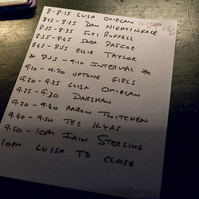 8 - 8.15 LUISA OMIELAN
8.15 - 8.35 DAN NIGHTINGALE
8.35 SUZI RUFFELL
8.35 - 8.45 SARA PASCOE
8.45 - 8.55 ELLIE TAYLOR
* 8.55 - 9.10 INTERVAL *
9.10 - 9.20 UPTONE GIRLS
9.20 - 9.25 LUISA OMIELAN
9.25 - 9.30 DARSHAN
9.30 - 9.40 AARON TWITCHEN
9.40 - 9.50 TEZ ILYAS
9.50 - 10PM IAIN STIRLING
10PM LUISA TO CLOSE